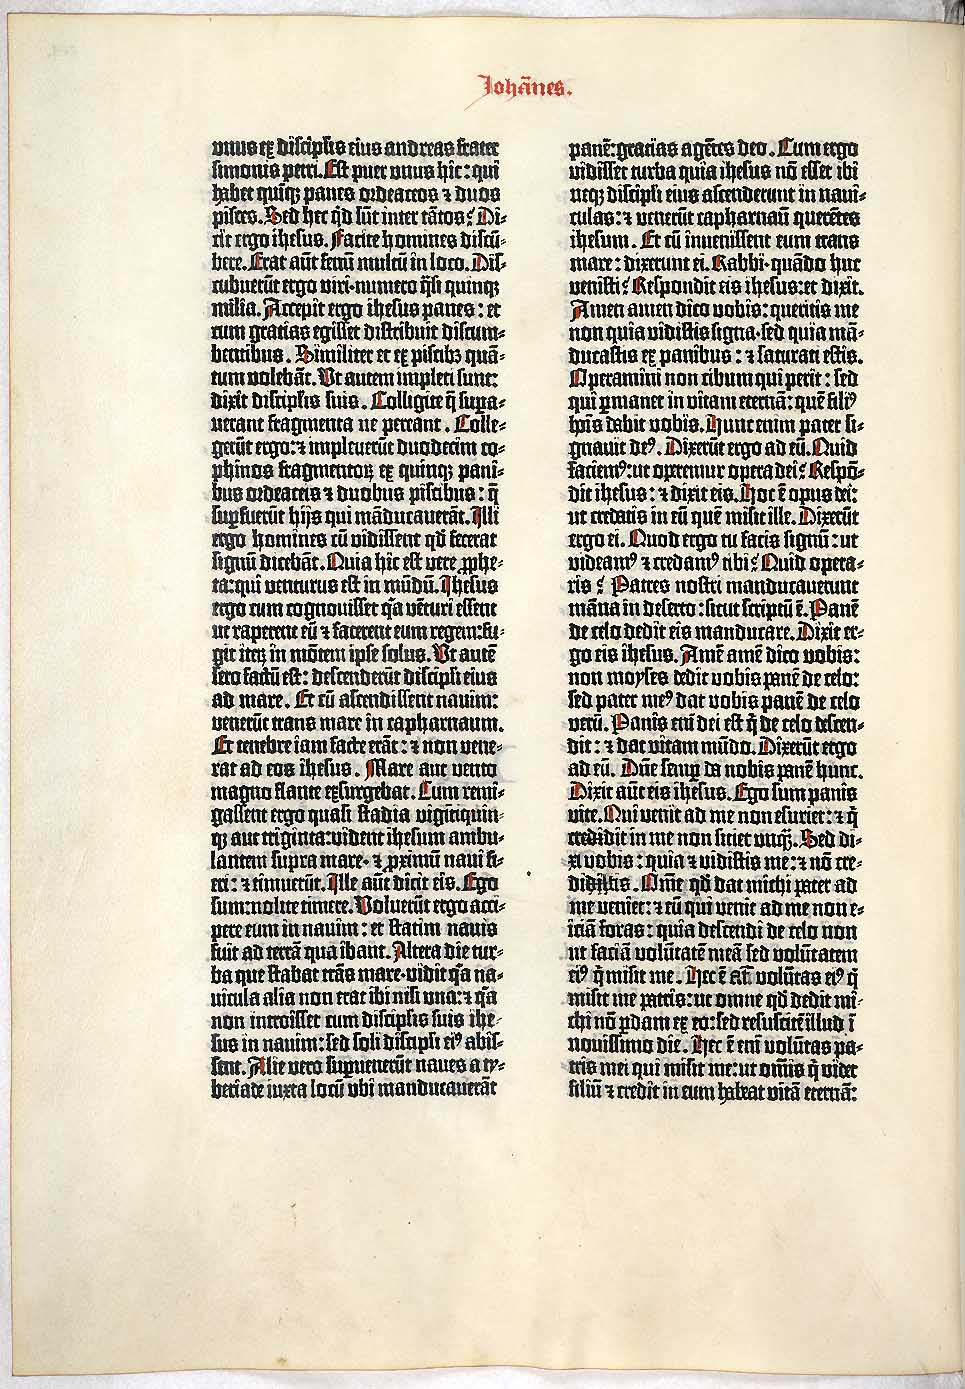 Johānes.
vnus ex discipl'is eius andreas frater
simonis petri. Est puer unus hic: qui
habet quinq; panes ordeaceos ⁊ duos
pisces. Sed hec q̄d sūt inter tātos? Di-
xit ergo ihesus. Facite homines discū-
bere. Erat aūt fenū multū in loco. Dis-
cubuerūt ergo viri·numero q̄si quinq;
milia. Accepit ergo ihesus panes: et
cum gratias egisset distribuit discum-
bentibus. Similiter et ex piscib; quā-
tum volebāt. Ut autem impleti sunt:
dixit discipl'is suis. Colligite q̄ sup̄a-
uerant fragmenta ne pereant. Colle-
gerūt ergo: ⁊ impleuerūt duodecim co-
phinos fragmentoꝝ ex quinq; pani-
bus ordeaceis ⁊ duobus piscibus: q̄
sup̄fuerūt hijs qui māducauerāt. Illi
ergo homines cū vidissent qd̄ fecerat
signū dicebāt. Quia hic est vere ꝓphe-
ta: qui venturus est in mūdū. Ihesus
ergo cum cognouisset q̄a vēturi essent
ut raperent eū ⁊ facerent eum regem: fu-
git iteꝝ in mōtem ipse solus. Ut autē
sero factū est: descenderūt discipl'i eius
ad mare. Et cū ascendissent nauim:
venerūt trans mare in capharnaum.
Et tenebre iam facte erāt: ⁊ non vene-
rat ad eos ihesus. Mare aut vento
magno flante exsurgebat. Cum remi-
gassent ergo quasi stadia vigītiquin-
q; aut triginta: vident ihesum ambu-
lantem supra mare· ⁊ ꝓximū naui fi-
eri: ⁊ timuerūt. Ille aūt dicit eis. Ego
sum: nolite timere. Voluerūt ergo acci-
pere eum in nauim: et statim nauis
fuit ad terrā quā ibant. Altera die tur-
ba que stabat trās mare· vidit q̄a na-
uicula alia non erat ibi nisi una: ⁊ q̄a
non introisset cum discipl'is suis ihe-
sus in nauim: sed soli discipl'i eiꝰ abis-
sent. Alie vero sup̄uenerūt naues a ty-
beriade iuxta locū vbi manducauerāt
panē: gracias agētes deo. Cum ergo
vidisset turba quia ihesus nō esset ibi
neq; discipl'i eius ascenderunt in naui-
culas: ⁊ venerūt capharnaū querētes
ihesum. Et cū inuenissent eum trans
mare: dixerunt ei. Rabbi· quādo huc
venisti? Respondit eis ihesus: et dixit.
Amen amen dico vobis: queritis me
non quia vidistis signa· sed quia mā-
ducastis ex panibus: ⁊ saturati estis.
Operamini non cibum qui perit: sed
qui p̄manet in vitam eternā: quē filiꝰ
hoīs dabit vobis. Hunc enim pater si-
gnauit deꝰ. Dixerūt ergo ad eū. Quid
faciemꝰ: ut operemur opera dei? Respō-
dit ihesus: ⁊ dixit eis. Hoc ē opus dei:
ut credatis in eū quē misit ille. Dixerūt
ergo ei. Quod ergo tu facis signū: ut
videamꝰ ⁊ credamꝰ tibi? Quid opera-
ris? Patres nostri manducauerunt
māna in deserto: sicut scriptū ē. Panē
de celo dedit eis manducare. Dixit er-
go eis ihesus. Amē amē dico vobis:
non moyses dedit vobis panē de celo:
sed pater meꝰ dat vobis panē de celo
verū. Panis eni dei est q̄ de celo descen-
dit: ⁊ dat vitam mūdo. Dixerūt ergo
ad eū. Dn̄e semp̄ da nobis panē hunc.
Dixit aūt eis ihesus. Ego sum panis
vite. Qui venit ad me non esuriet: ⁊ q̄
credidit in me non sitiet vnq̄. Sed di-
xi vobis: quia ⁊ vidistis me: ⁊ nō cre-
didistis. Omē qd̄ dat michi pater ad
me veniet: ⁊ eū qui venit ad me non e-
iciā foras: quia descendi de celo non
ut faciā volūtatē meā sed volūtatem
eiꝰ q̄ misit me. Hec ē aūt volūtas eiꝰ q̄
misit me patris: ut omne qd̄ dedit mi-
chi nō p̄dam ex eo: sed resuscitē illud ī
nouissimo die. Hec ē eni volūtas pa-
tris mei qui misit me: ut omīs q̄ videt
filiū ⁊ credit in eum habeat vitā eternā: